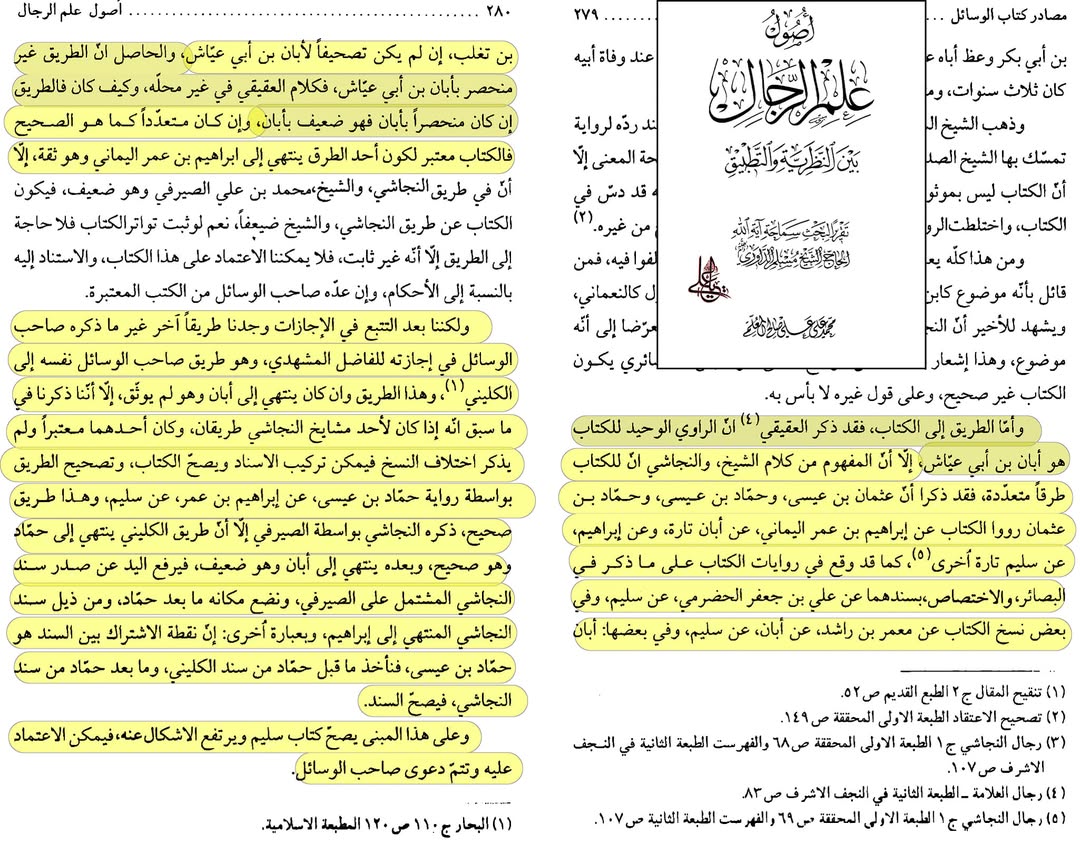 مصادر كتاب الوسائل ... ٢٧٩
بن أبي بكر وعظ أباه عند وفاة أبيه
كان ثلاث سنوات،
وذهب الشيخ ردّه لرواية
تمسّك بها الشيخ الصد حة المعنى إلّا
أنّ الكتاب ليس بموثو ه قد دسّ في
الكتاب، واختلطت الرو من غيره.(٢)
ومن هذا كلّه يعـ لفوا فيه، فمن
قائل بأنّه موضوع كابن ل كالنعماني،
ويشهد للأخير أنّ النج عرّضا إلى أنّه
موضوع، وهذا إشعار ائري يكون
الكتاب غير صحيح، وعلى قول غيره لا بأس به.
وأمّا الطريق إلى الكتاب، فقد ذكر العقيقي(٤) انّ الراوي الوحيد للكتاب
هو أبان بن أبي عيّاش، إلّا أنّ المفهوم من كلام الشيخ، والنجاشي انّ للكتاب
طرقاً متعدّدة، فقد ذكرا أنّ عثمان بن عيسى، وحمّاد بن عيسى، وحمّاد بن
عثمان رووا الكتاب عن إبراهيم بن عمر اليماني، عن أبان تارة، وعن إبراهيم،
عن سليم تارة أخرى(٥)، كما قد وقع في روايات الكتاب على ما ذكر في
البصائر، والاختصاص، بسندهما عن علي بن جعفر الحضرمي، عن سليم، وفي
بعض نسخ الكتاب عن معمر بن راشد، عن أبان، عن سليم، وفي بعضها: أبان
(١) تنقيح المقال ج٢ الطبع القديم ص٥٢.
(٢) تصحيح الاعتقاد الطبعة الاولى المحققة ص١٤٩.
(٣) رجال النجاشي ج١ الطبعة الاولى المحققة ص٦٨ والفهرست الطبعة الثانية في النجف
الاشرف ص١٠٧.
(٤) رجال العلامة ـ الطبعة الثانية في النجف الاشرف ص٨٣.
(٥) رجال النجاشي ج١ الطبعة الاولى المحققة ص٦٩ والفهرست الطبعة الثانية ص١٠٧.
أصول
علم الرجال
بين النظرية والتطبيق
تقرير البحث سماحة آية الله
الحاج الشيخ مسلم الداوري
محمد علي علي صالح المعلم
٢٨٠ ... أصول علم الرجال
بن تغلب، إن لم يكن تصحيفاً لأبان بن أبي عيّاش، والحاصل انّ الطريق غير
منحصر بأبان بن أبي عيّاش، فكلام العقيقي في غير محلّه، وكيف كان فالطريق
إن كان منحصراً بأبان فهو ضعيف بأبان، وإن كان متعدّداً كما هو الصحيح
فالكتاب معتبر لكون أحد الطرق ينتهي إلى ابراهيم بن عمر اليماني وهو ثقة، إلّا
أنّ في طريق النجاشي، والشيخ، محمد بن علي الصيرفي وهو ضعيف، فيكون
الكتاب عن طريق النجاشي، والشيخ ضعيفاً، نعم لو ثبت تواتر الكتاب فلا حاجة
إلى الطريق إلّا أنّه غير ثابت، فلا يمكننا الاعتماد على هذا الكتاب، والاستناد إليه
بالنسبة إلى الأحكام، وإن عدّه صاحب الوسائل من الكتب المعتبرة.
ولكننا بعد التتبع في الإجازات وجدنا طريقاً آخر غير ما ذكره صاحب
الوسائل في إجازته للفاضل المشهدي، وهو طريق صاحب الوسائل نفسه إلى
الكليني(١)، وهذا الطريق وان كان ينتهي إلى أبان وهو لم يوثّق، إلّا أنّنا ذكرنا في
ما سبق انّه إذا كان لأحد مشايخ النجاشي طريقان، وكان أحدهما معتبراً ولم
يذكر اختلاف النسخ فيمكن تركيب الاسناد ويصحّ الكتاب، وتصحيح الطريق
بواسطة رواية حمّاد بن عيسى، عن إبراهيم بن عمر، عن سليم، وهذا طريق
صحيح، ذكره النجاشي بواسطة الصيرفي إلّا أنّ طريق الكليني ينتهي إلى حمّاد
وهو صحيح، وبعده ينتهي إلى أبان وهو ضعيف، فيرفع اليد عن صدر سند
النجاشي المشتمل على الصيرفي، ونضع مكانه ما بعد حمّاد، ومن ذيل سند
النجاشي المنتهي إلى إبراهيم، وبعبارة أخرى: إنّ نقطة الاشتراك بين السند هو
حمّاد بن عيسى، فنأخذ ما قبل حمّاد من سند الكليني، وما بعد حمّاد من سند
النجاشي، فيصحّ السند.
وعلى هذا المبنى يصحّ كتاب سليم ويرتفع الاشكال عنه، فيمكن الاعتماد
عليه وتتمّ دعوى صاحب الوسائل.
(١) البحار ج١١٠ ص١٢٠ المطبعة الاسلامية.